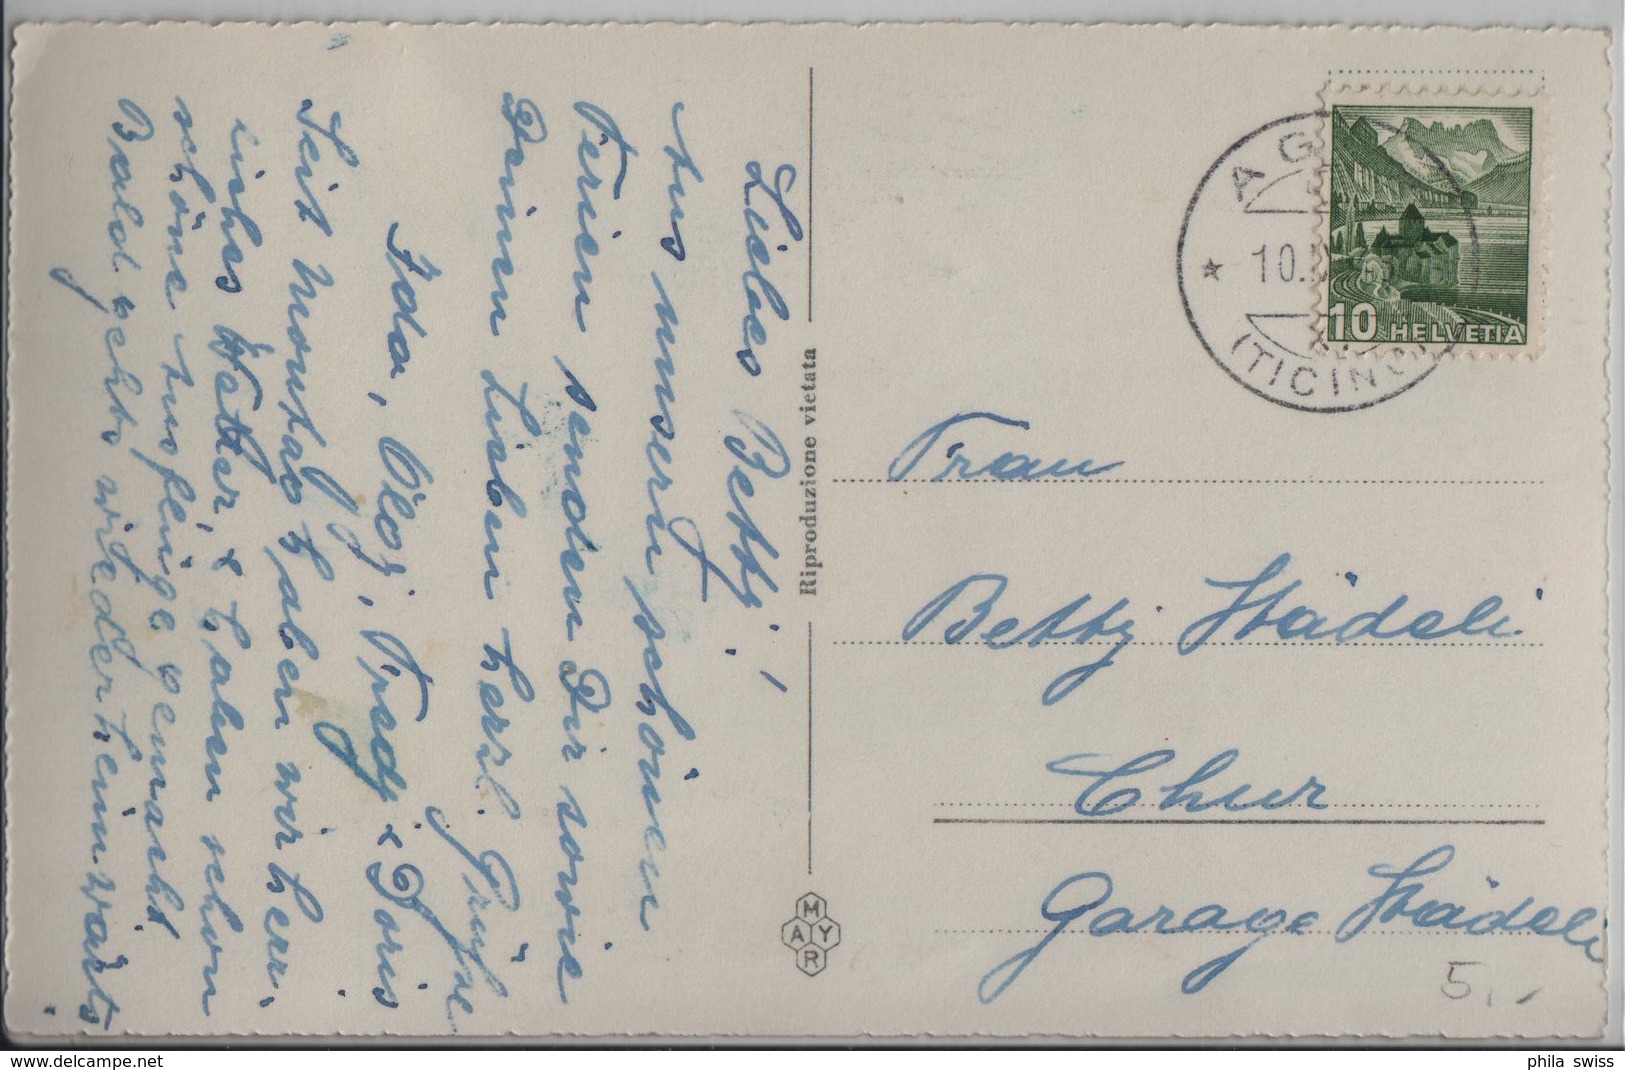 Liebes Betty!
Aus unsern schönen
Ferien senden Dir sowie
Deinen Lieben herzl. Grüsse
Ida, Ologj, Fredj & Doris
Seit Montag haben wir herr-
liches Wetter, & haben schon
schöne Ausflüge gemacht
Bald gehts wieder heimwärts.
Riproduzione vietata
MAYR
AG
10.
(TICINO)
10 HELVETIA
Frau
Betty Städeli
Chur
Garage Städeli
5.-
delcampe.net
phila_swiss